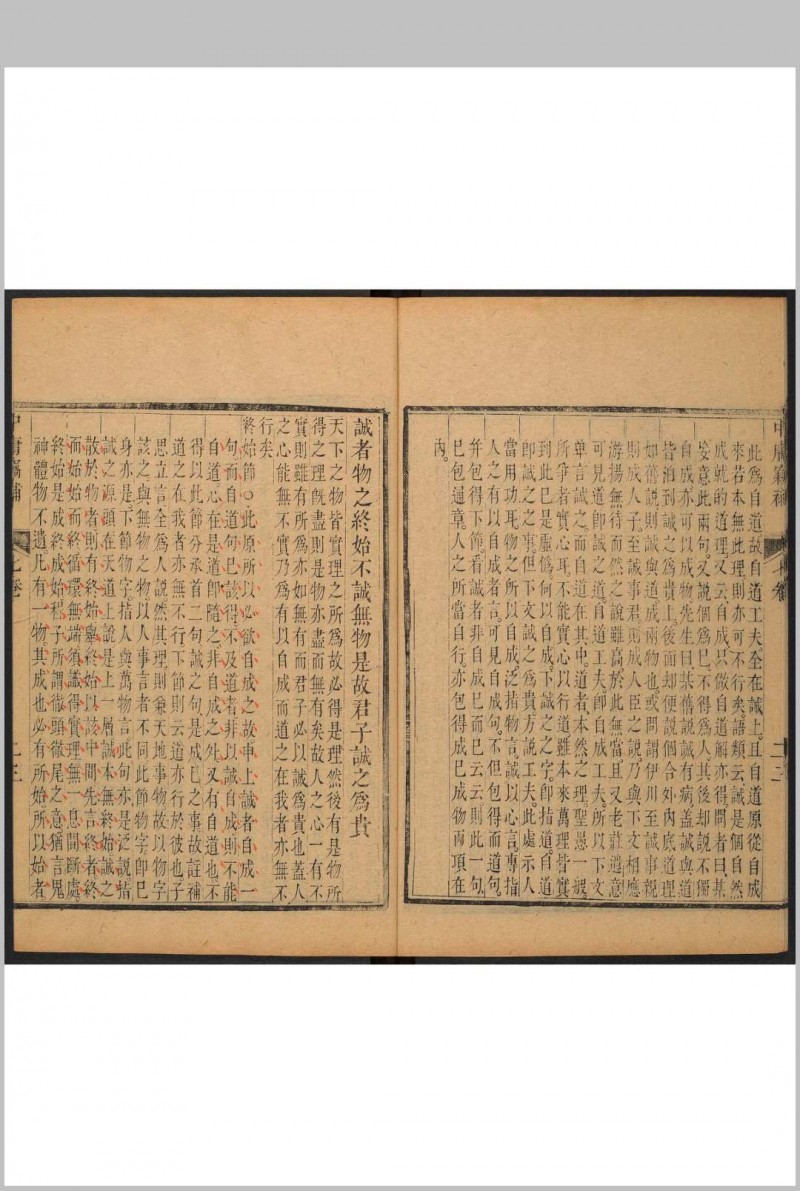 此爲自道故自道工夫全在誠上且自道原從自成
來若本無此理則亦可不行矣語類云誠是個自然
成就的道理又云自成只做自道解亦得問者曰某
妄意此兩句又說個爲己不得爲人其後却說不獨
自成亦可以成物先生曰某舊說誠有病蓋誠與道
皆泊到誠之爲貴上後面却便說個合外內底道理
如舊說則誠與道成兩物也或問謂伊川至誠事親
則成人子至誠事君則成人臣之說乃與下文相應
游楊無待而然之說雖高於此無當且又老莊遺意
可見道即誠之道自道工夫即自成工夫所以下文
單言誠之而自道在其中道者本然之理聖愚一揆
所爭者實心耳不能實心以行道雖本來萬理皆實
到此已是虛僞何以自成下誠之之字即指道自道
即誠之之事但下文誠之爲貴方說工夫此處示人
當用功耳物之所以自成泛指物言誠以心言專指
人之有以自成者言可見自成句不但包得而道句
幷包得下節看誠者非自成己而已云云則此一句
已包通章人之所當自行亦包得成己成物兩項在
內
誠者物之終始不誠無物是故君子誠之爲貴
天下之物皆實理之所爲故必得是理然後有是物所
得之理旣盡則是物亦盡而無有矣故人之心一有不
實則雖有所爲亦如無有而君子必以誠爲貴也蓋人
之心能無不實乃爲有以自成而道之在我者亦無不
行矣
終始節○此原所以必欲自成之故申上誠者自成一
句而自道句已該得不及道者非以誠自成則不能
自道心在是道即隨之非自成之外又有自道也不
得以此節分承首二句誠之句是成己之事故註補
道之在我者亦無不行下節則云道亦行於彼也子
思立言全爲人說然其理則兼天地事物故以物字
該之與無物之物以人事言者不同此節物字即己
身亦是下節物字指人與萬物言此句亦是泛說指
誠之源頭在天道上說是上一層誠本無終始誠之
散於物者則有終始舉終始以該中間先言終者終
而始始而終循環無端須識得實理無一息間斷處
終始是成終成始程子所謂徹頭徹尾之意猶言鬼
神體物不遺凡有一物其成也必有所始所以始者